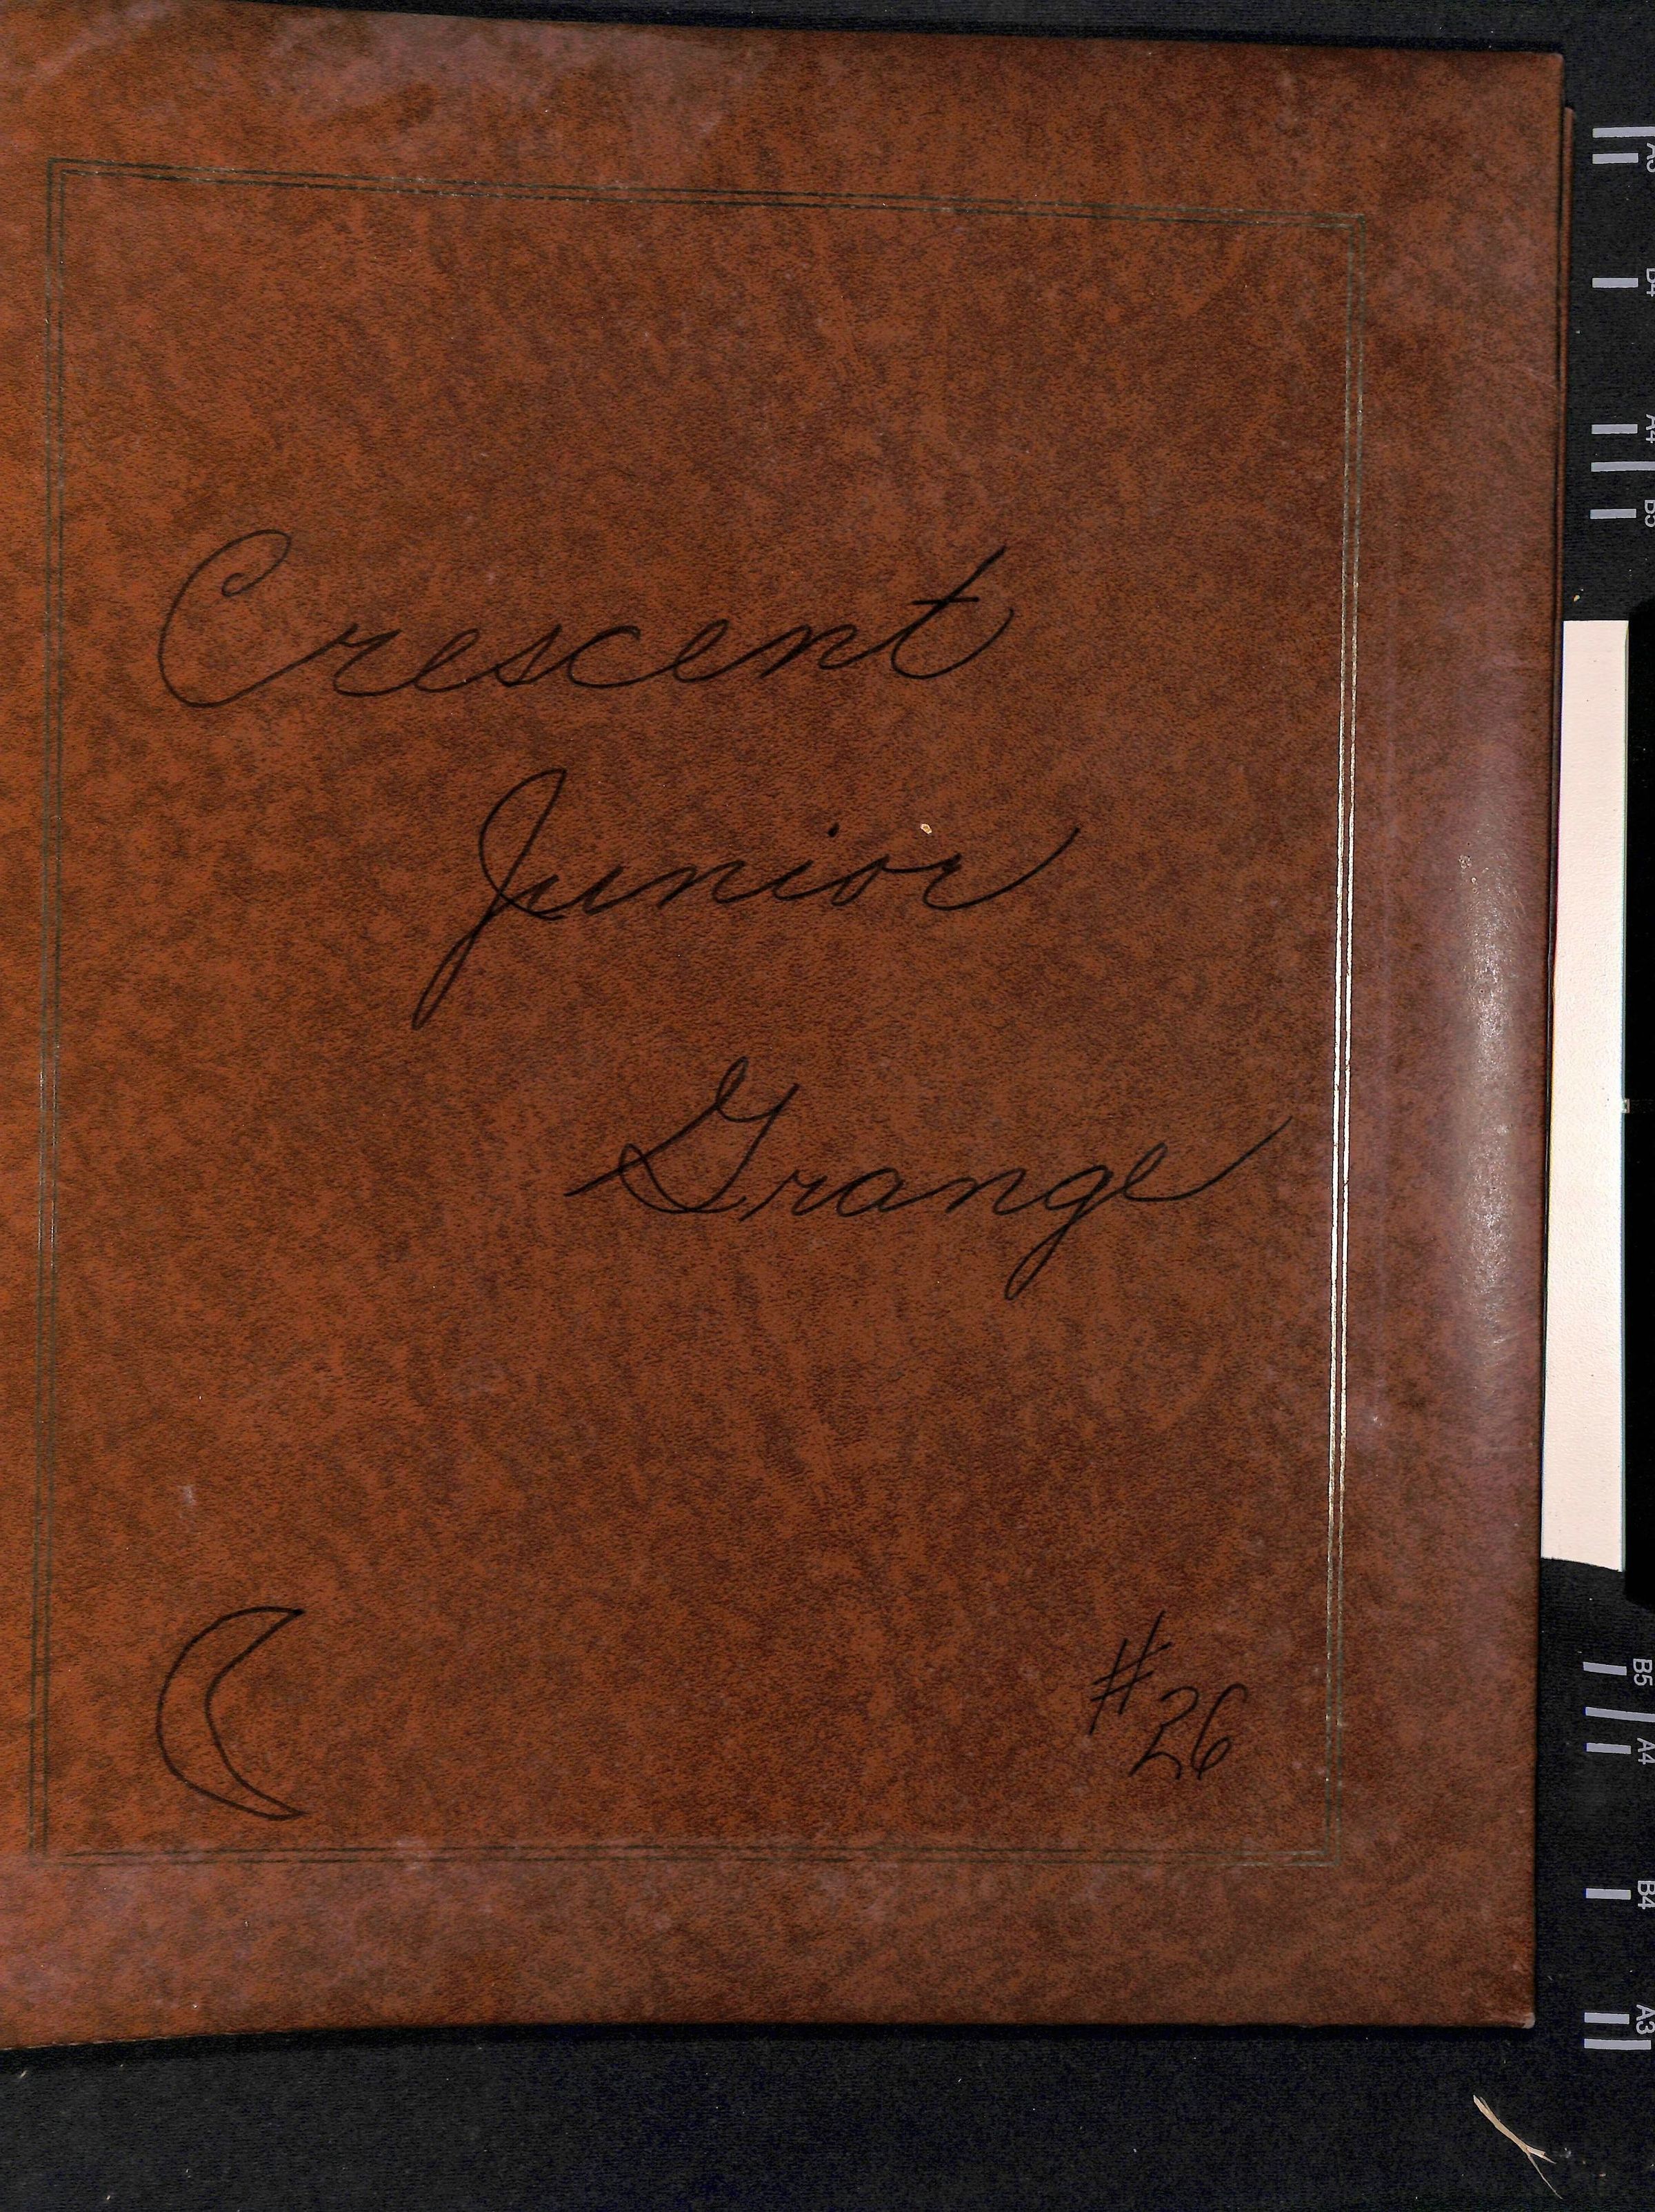 Crescent
Junior
Grange
#26
A3
B4
A4
B5
B5
A4
B4
A3